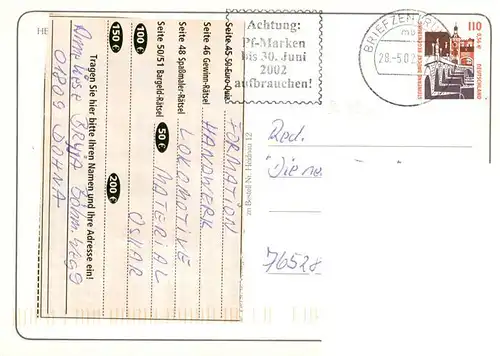 HE
Tragen Sie hier bitte Ihren Namen und Ihre Adresse ein!
01809 DOHNA
150 €
100 €
200 €
Seite 50/51 Bargeld-Rätsel 50 €
Seite 48 Spaßmaler-Rätsel
Seite 46 Gewinn-Rätsel
Seite 45 50-Euro-Quiz
FORMATION
HANDWERK
LOKOMOTIVE
MATERIAL
OSKAR
zu Bestell-Nr.
12
Achtung:
Pf-Marken
bis 30. Juni
2002
aufbrauchen!
BRIEFZENTRUM
mb
28.-5.02
110
0,56 €
DEUTSCHLAND
Red.
76528